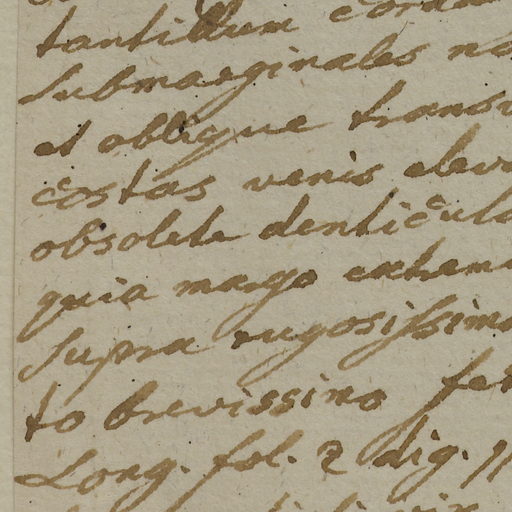 tantillum corda
submarginales no
et oblique transv
costas venis eleva
obsolete denticula
quia margo extem
supra rugosissima
to brevissimo fer
Long. fol. 2 dig. 11